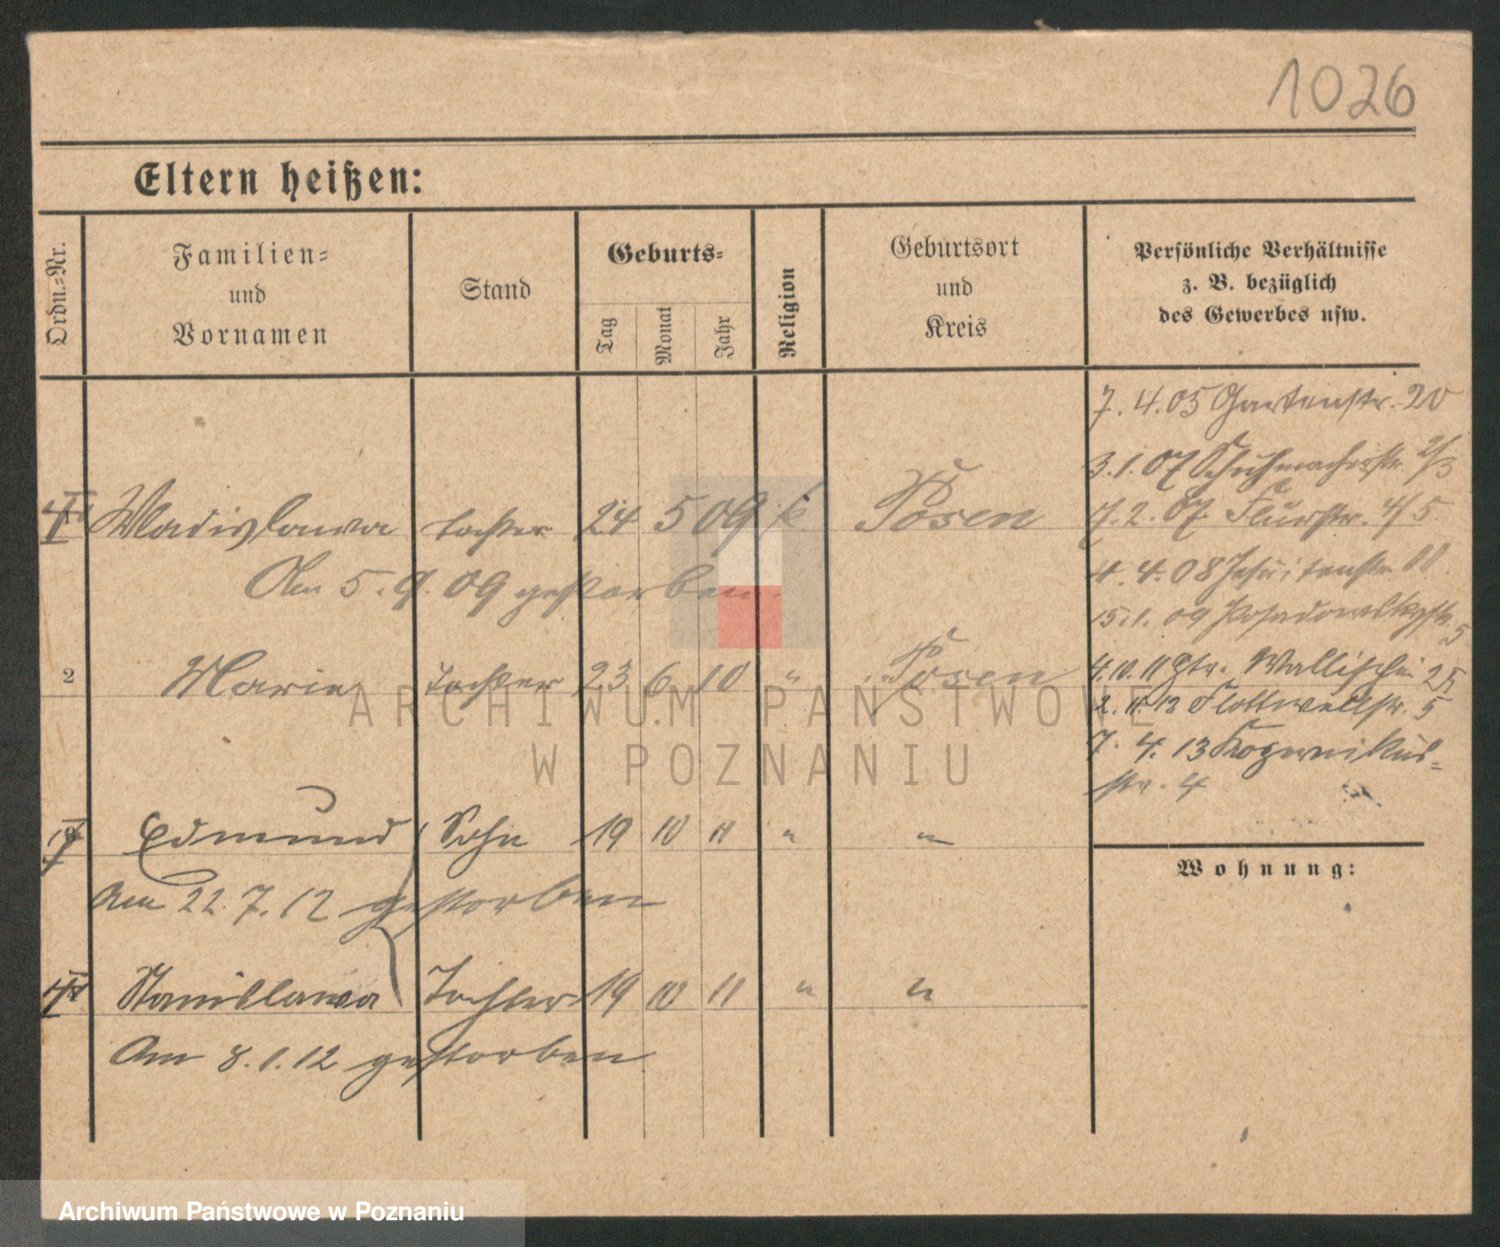 1026
Eltern heißen:
Ordn.=Nr.
Familien=
und
Vornamen
Stand
Geburts=
Tag
Monat
Jahr
Religion
Geburtsort
und
Kreis
Persönliche Verhältnisse
z. B. bezüglich
des Gewerbes usw.
7. 4. 05 Gartenstr. 20
3. 1. 07 Schuhmacherstr. 2/3
7. 2. 07 Flurstr. 4/5
Wladislawa Tochter 24 5 09 k Posen
4. 4. 08 Jesuitenstr. 11
Am 5. 9. 09 gestorben
15. 1. 09 Posadowskystr. 5
2 Marie Tochter 23 6. 10 " Posen
4. 10. 11 Wallischei 25
2. 11. 12 Flottwellstr. 5
7. 4. 13 Kopernikus=
str. 4
Edmund Sohn 19 10 11 " "
Wohnung:
Am 22. 7. 12 gestorben
Stanislawa Tochter 19 10 11 " "
Am 8. 1. 12 gestorben
ARCHIWUM PAŃSTWOWE
W POZNANIU
Archiwum Państwowe w Poznaniu